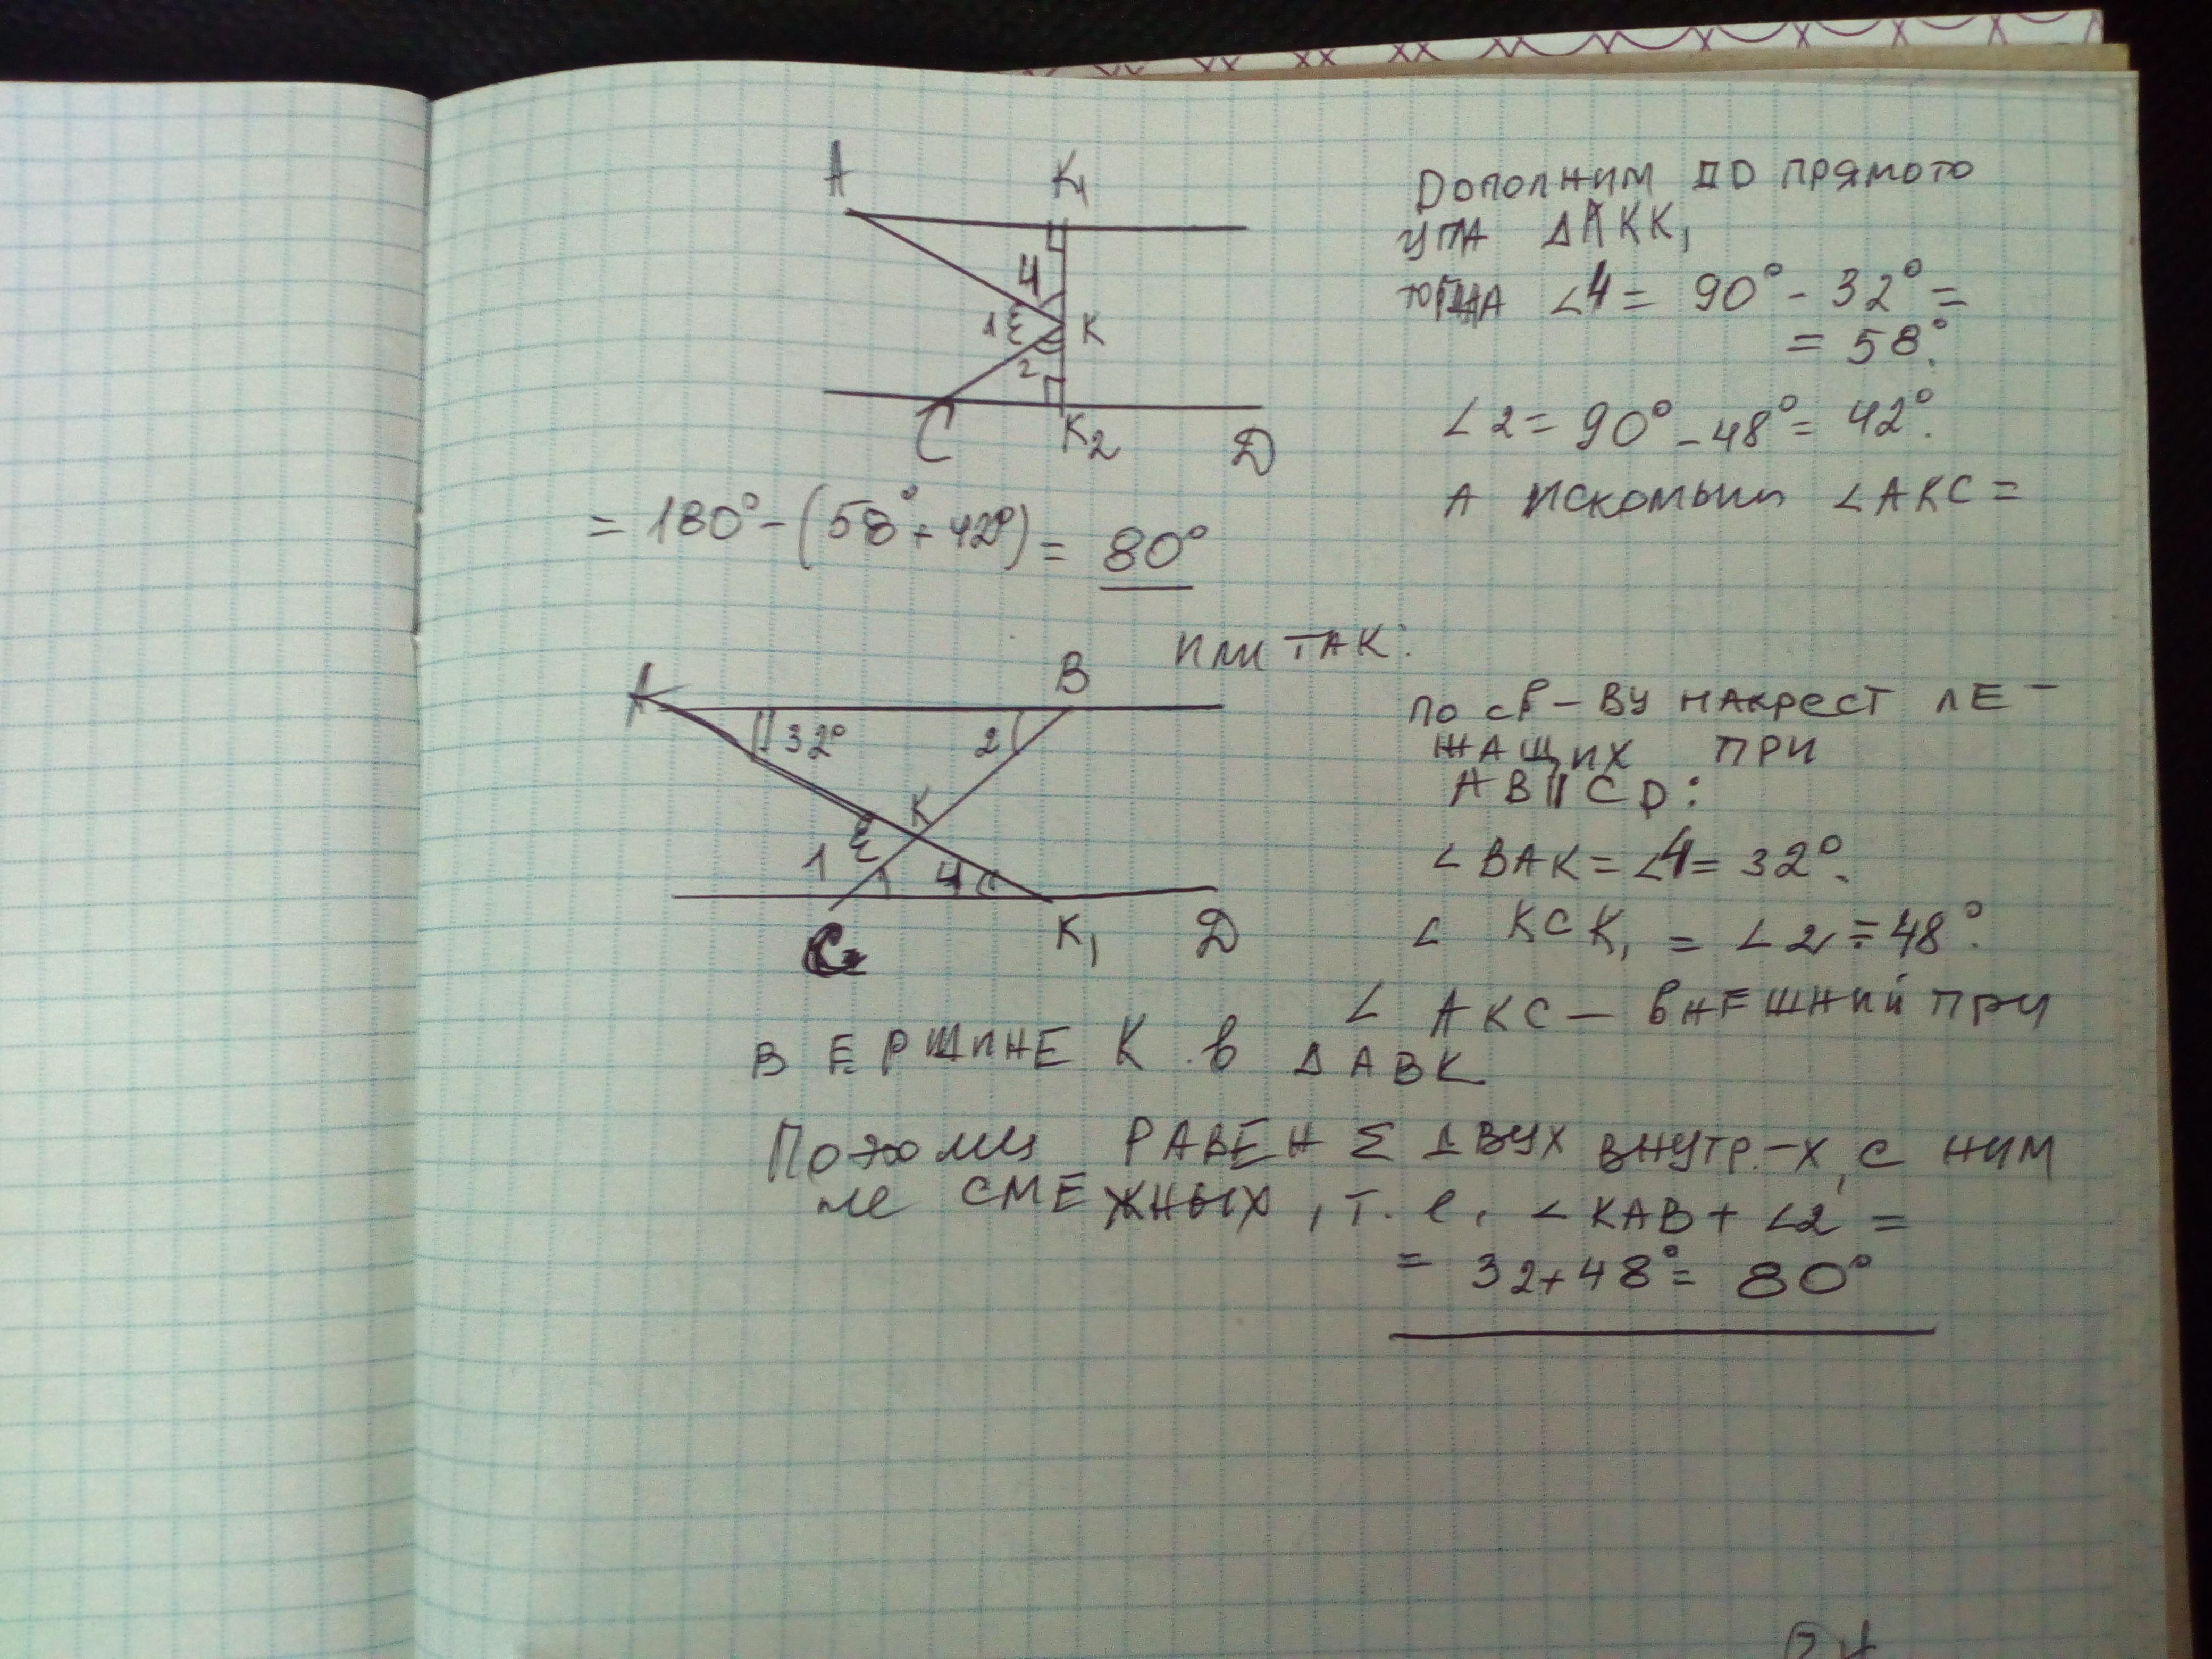 A K₁
Дополним до прямото
угла ΔAKK₁
тогда ∠4 = 90° - 32° =
= 58°.
4
1 K
2
C K₂ D
∠2 = 90° - 48° = 42°.
А искомый ∠AKC =
= 180° - (58° + 42°) = 80°
или так:
A B
32° 2
K
1 4
C K₁ D
по св-ву накрест ле-
жащих при
AB∥CD:
∠BAK = ∠4 = 32°.
∠KCK₁ = ∠2 = 48°.
∠AKC – внешний при
вершине K в ΔABK
Поэтому равен Σ двух внутр.-х, с ним
не смежных, т.е. ∠KAB + ∠2 =
= 32 + 48° = 80°